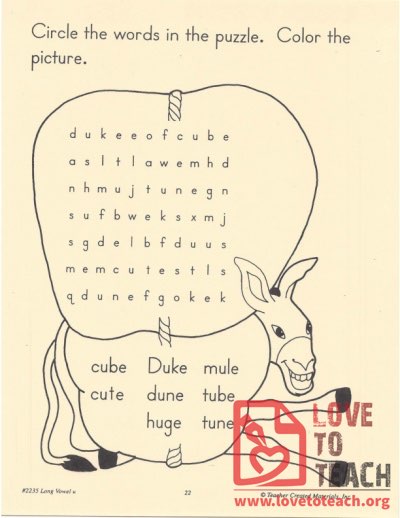 Circle the words in the puzzle. Color the
picture.
d u k e e o f c u b e
a s l t l a w e m h d
n h m u j t u n e g n
s u f b w e k s x m j
s g d e l b f d u u s
m e m c u t e s t l s
q d u n e f g o k e k
cube Duke mule
cute dune tube
huge tune
LOVE
TO
TEACH
#2235 Long Vowel u
22
© Teacher Created Materials, Inc.
www.lovetoteach.org